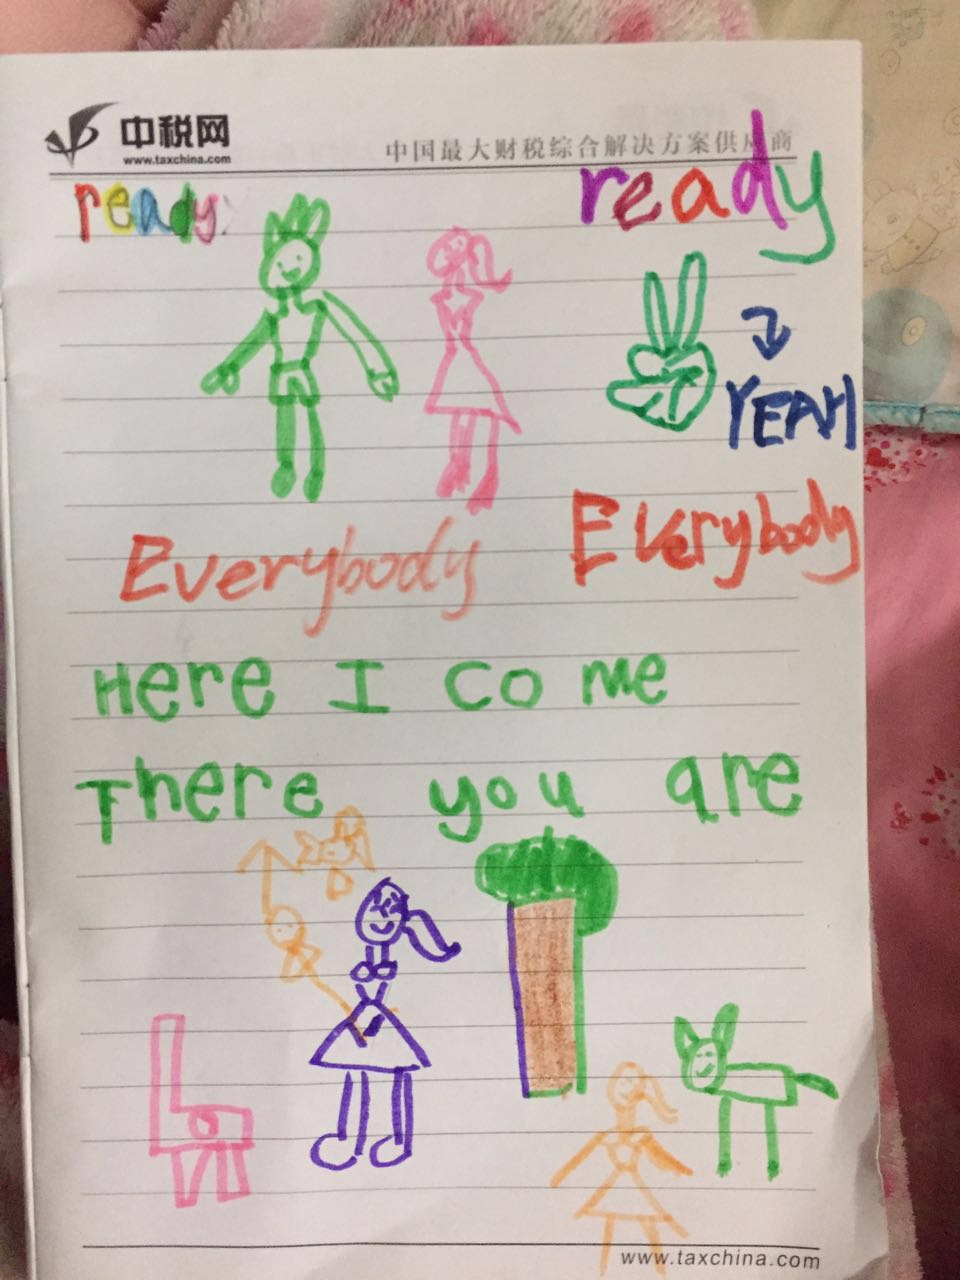 中税网
www.taxchina.com
中国最大财税综合解决方案供应商
ready: ready
YEAH
Everybody Everybody
Here I come
There you are
www.taxchina.com